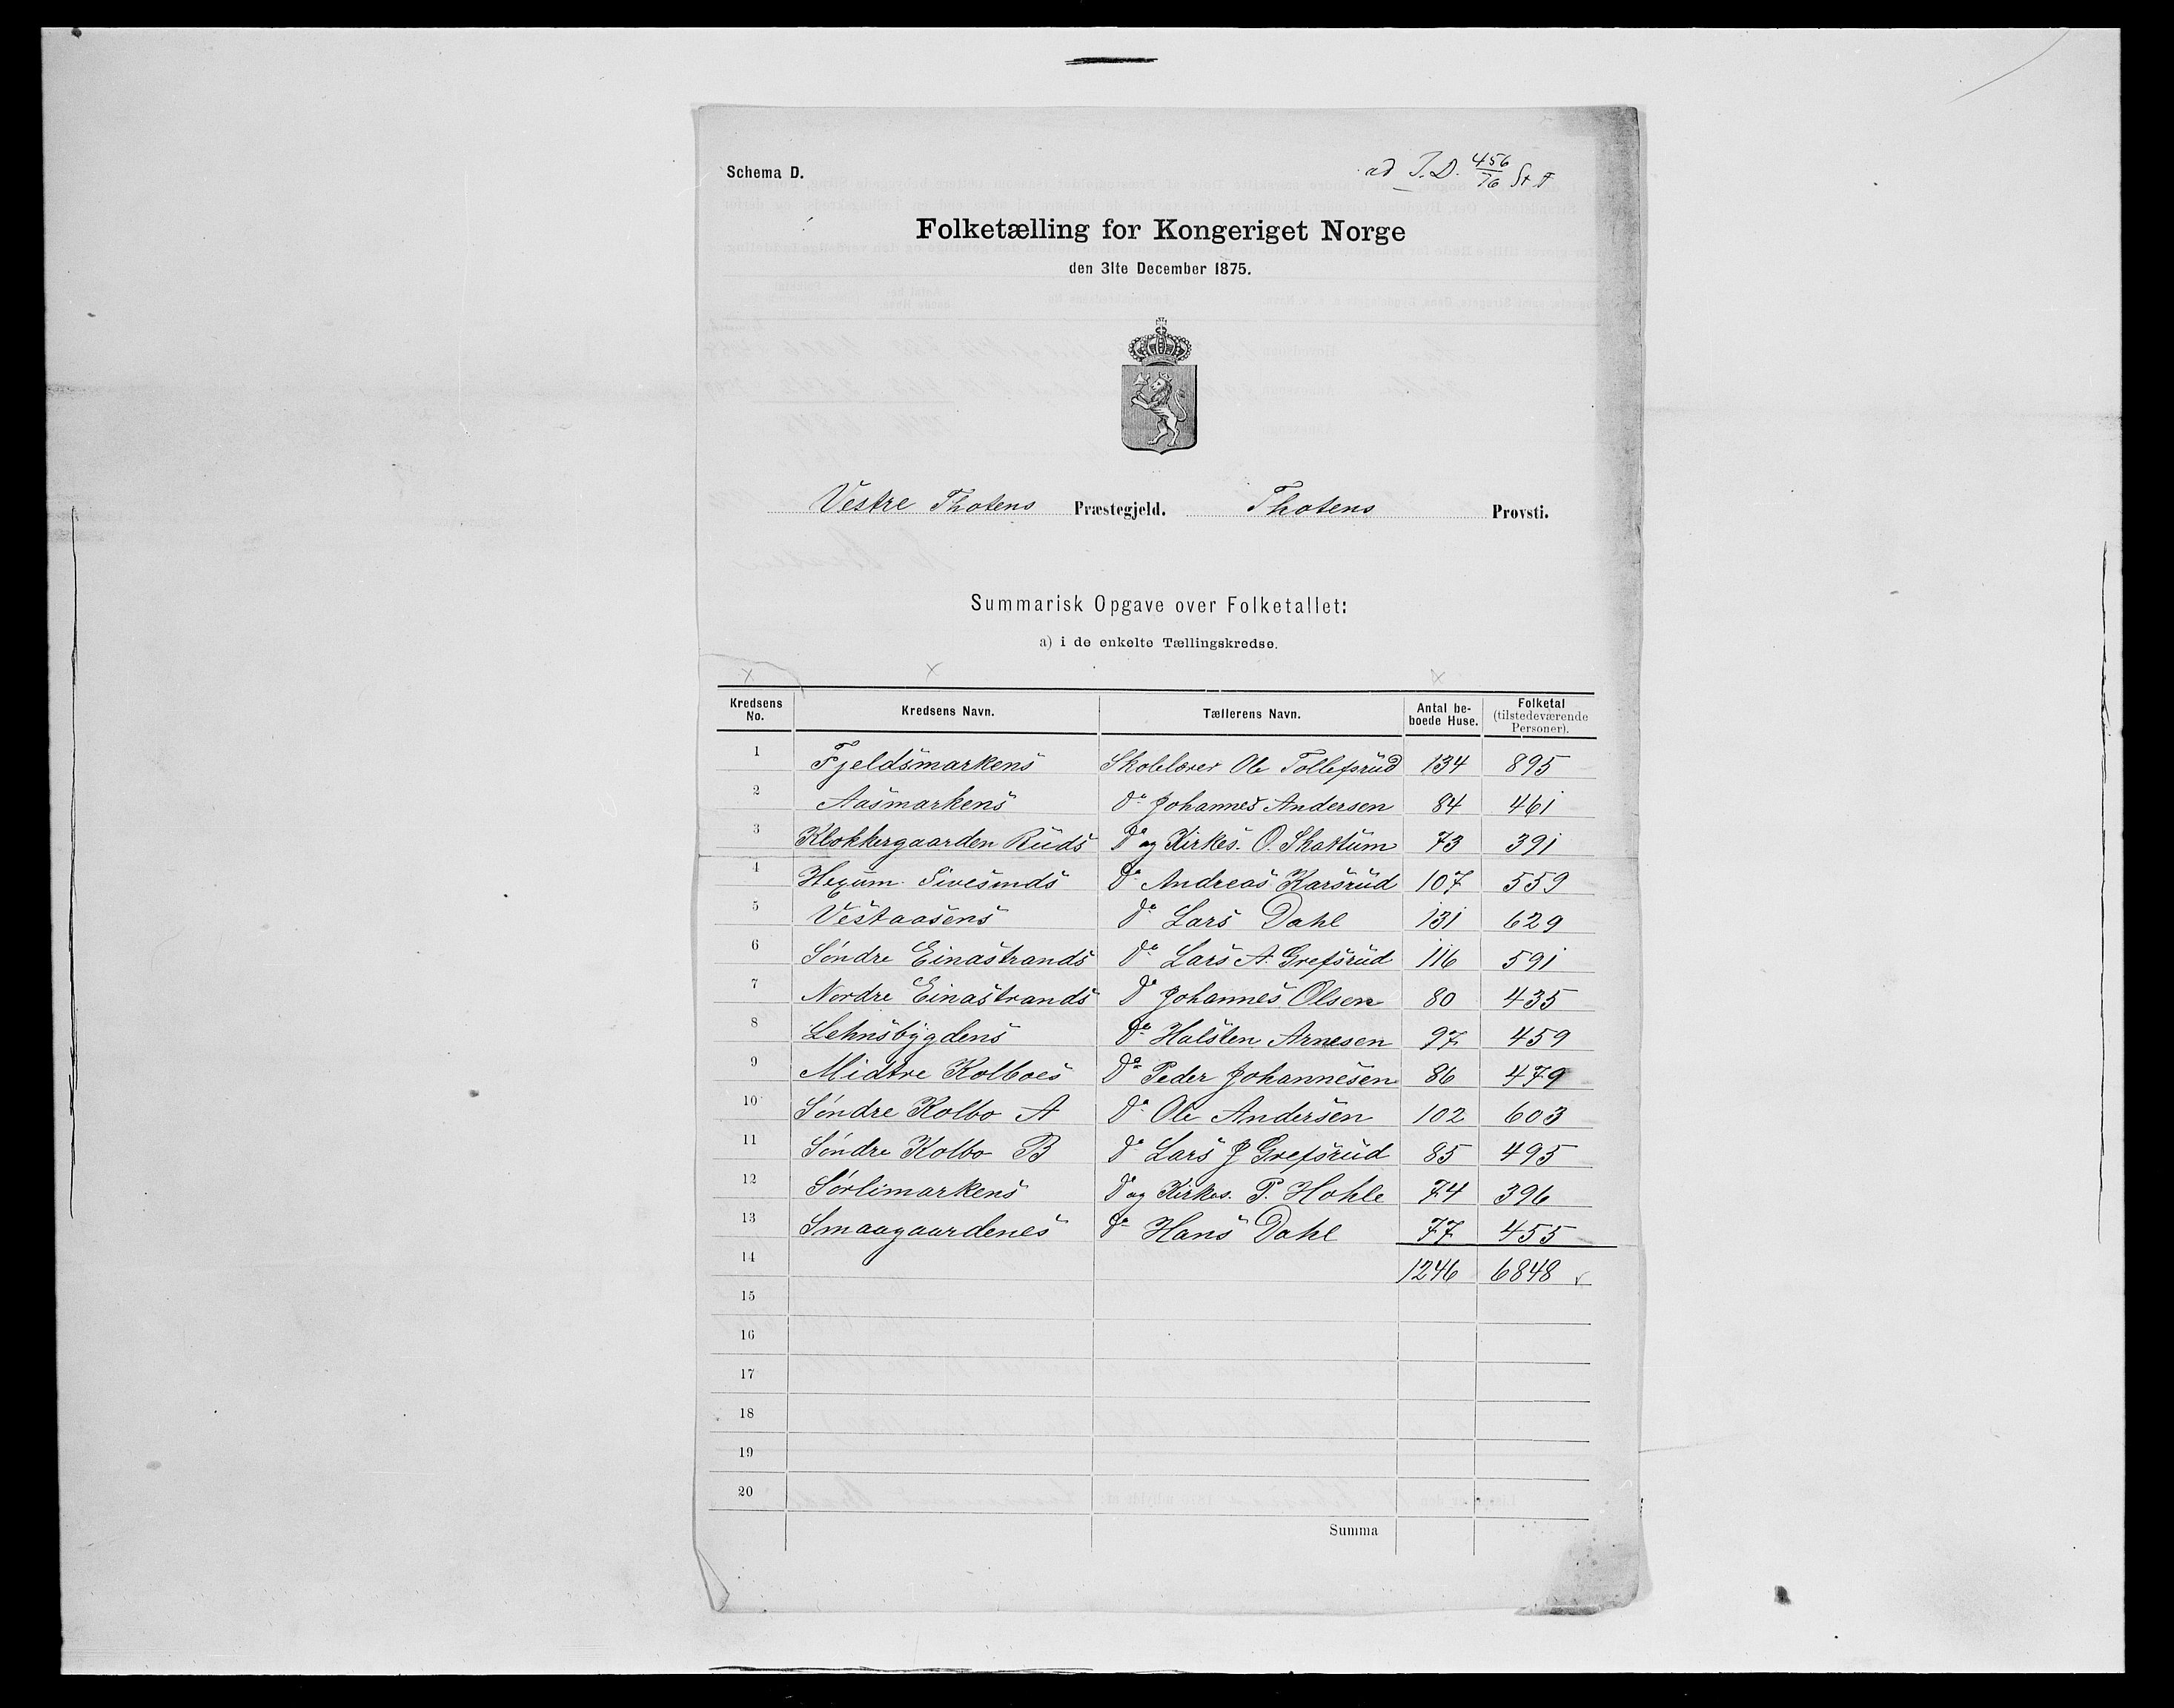 Schema D.
ad J.D. 456/76 St. T
Folketælling for Kongeriget Norge
den 31te December 1875.
Vestre Thotens Præstegjeld. Thotens Provsti.
Summarisk Opgave over Folketallet:
a) i de enkelte Tællingskredse.
Kredsens No. Kredsens Navn. Tællerens Navn. Antal beboede Huse. Folketal (tilstedeværende Personer).
1 Fjeldsmarkens Skolelærer Ole Tollefsrud 134 895
2 Aasmarkens Do Johannes Andersen 84 461
3 Klokkergaarden Ruds Do og Kirkes. O. Skattum 73 391
4 Hexum Sivesinds Do Andreas Karsrud 107 559
5 Vestaasens Do Lars Dahl 131 629
6 Søndre Einastrands Do Lars A. Grefsrud 116 591
7 Nordre Einastrands Do Johannes Olsen 80 435
8 Lehnsbygdens Do Halsten Arnesen 97 459
9 Midtre Kolboes Do Peder Johannesen 86 479
10 Søndre Kolbo A Do Ole Andersen 102 603
11 Søndre Kolbo B Do Lars J Grefsrud 85 495
12 Sørlimarkens Do og Kirkes. P. Hohle 74 396
13 Smaagaardenes Do Hans Dahl 77 455
14 1246 6848
15
16
17
18
19
20
Summa